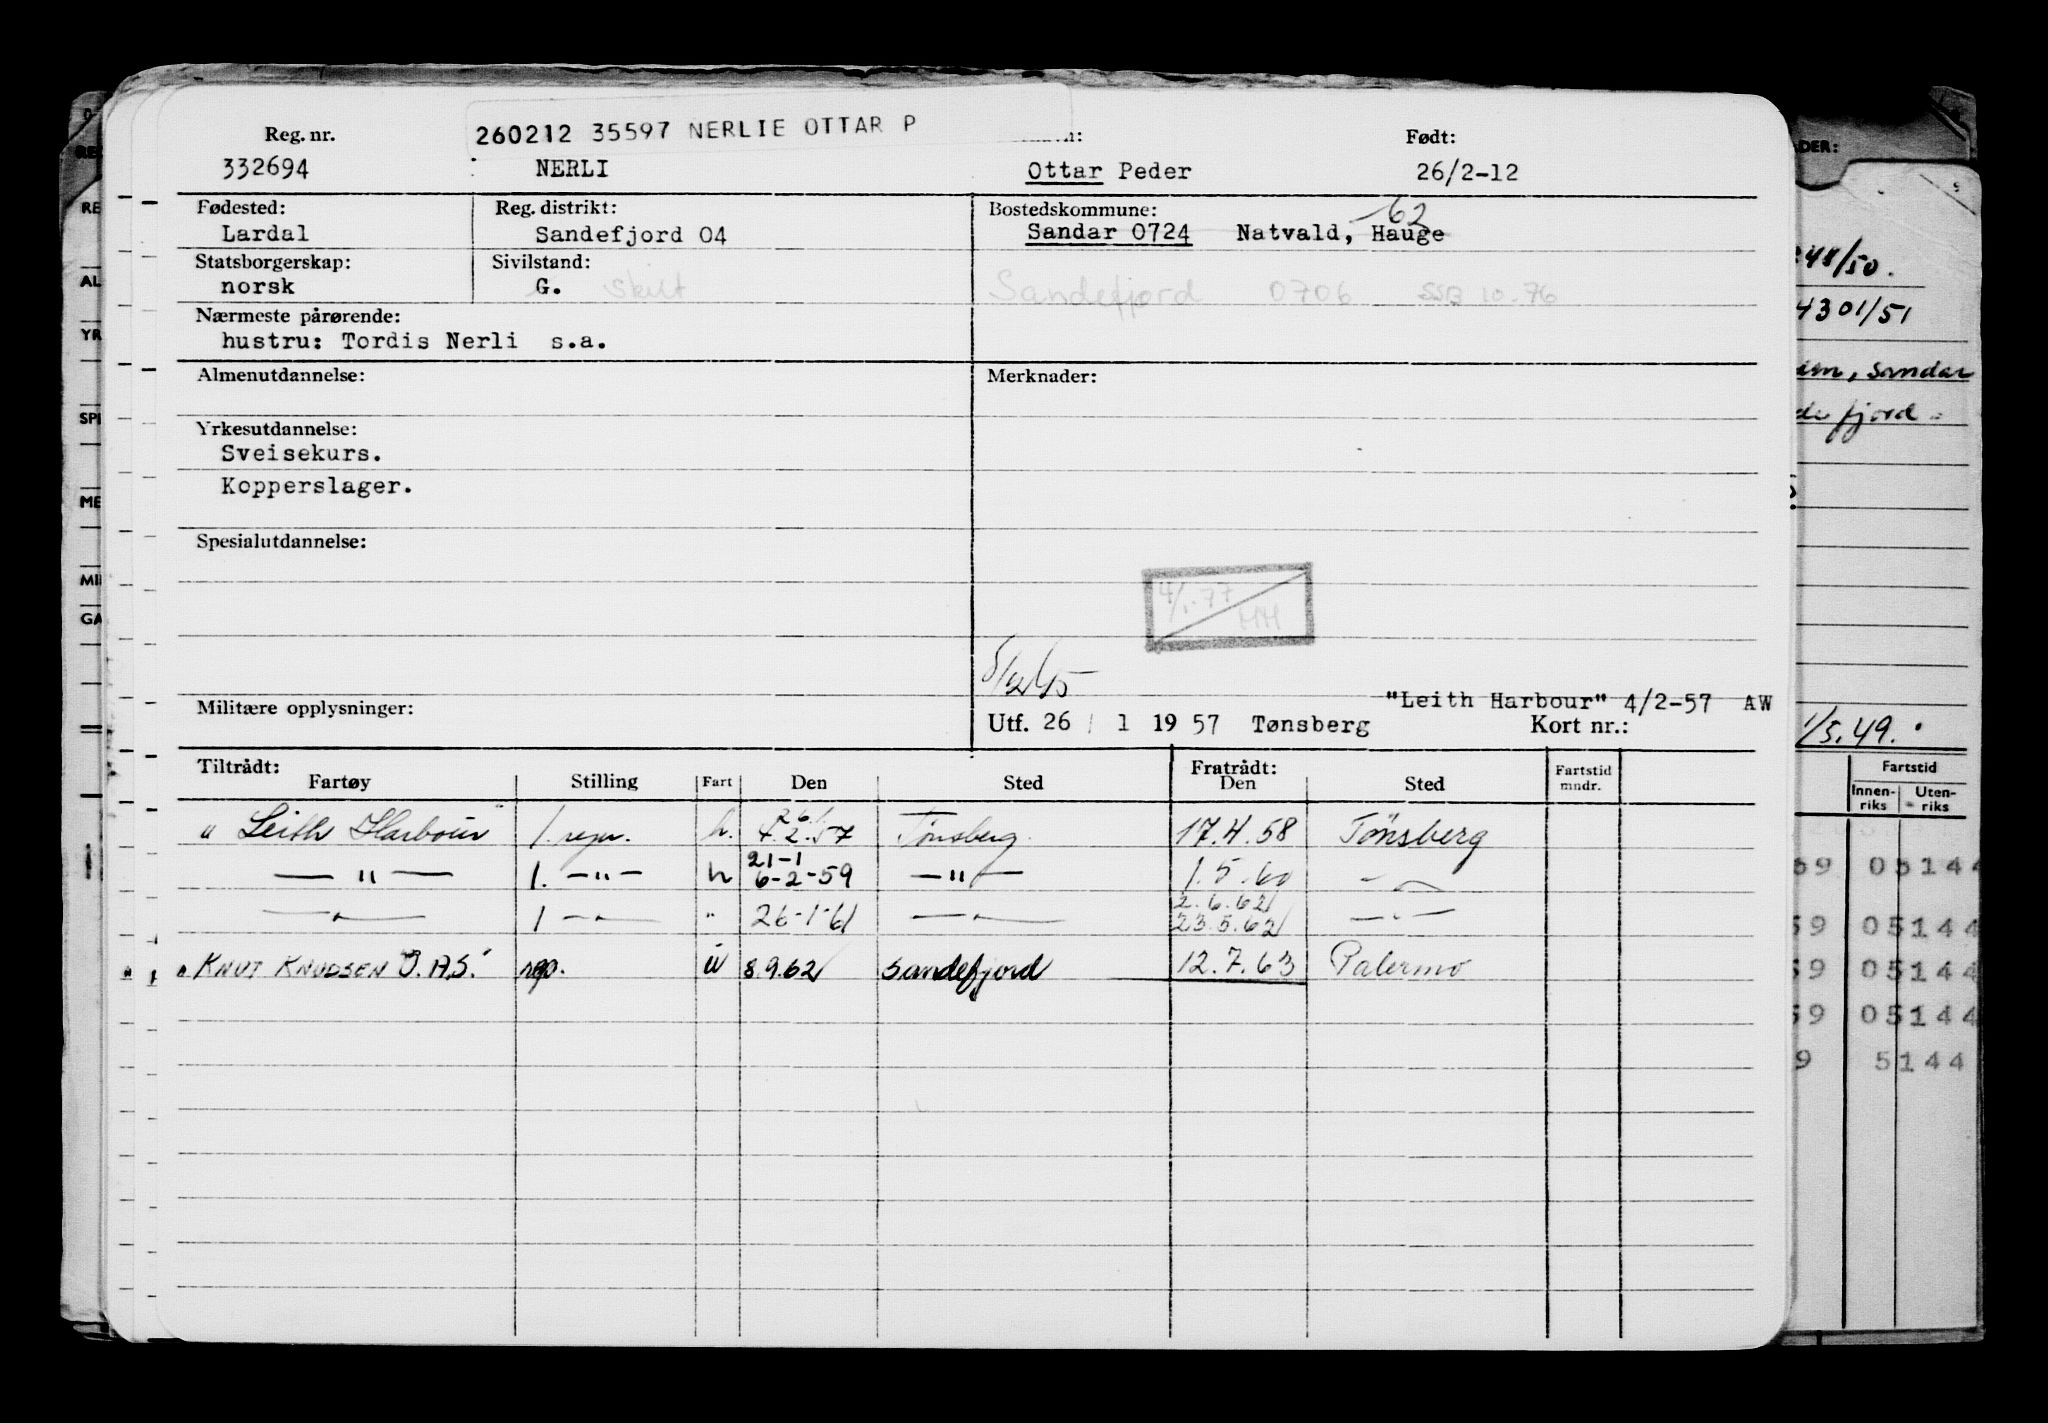 260212 35597 NERLIE OTTAR P
Reg. nr. Født:
332694 NERLI Ottar Peder 26/2-12
Fødested: Reg. distrikt: Bostedskommune: -62
Lardal Sandefjord 04 Sandar 0724 Natvald, Hauge
Statsborgerskap: Sivilstand:
norsk G. skilt Sandefjord 0706 SSB 10.76
Nærmeste pårørende:
hustru: Tordis Nerli s.a.
Almenutdannelse: Merknader:
Yrkesutdannelse:
Sveisekurs.
Kopperslager.
Spesialutdannelse:
4/1.77
HH
"Leith Harbour" 4/2-57 AW
Militære opplysninger: Utf. 26 / 1 19 57 Tønsberg Kort nr.:
Tiltrådt: Fratrådt:
Fartøy Stilling Fart Den Sted Den Sted Fartstid mndr.
26/1
"Leith Harbour" 1. repr. h. 4.2.57 Tønsberg. 17.4.58 Tønsberg
21-1
— " — 1. — " — h 6-2-59 — " — 1.5.60 — " —
2.6.62
— " — 1 — " — " 26-1-61 — " — 23.5.62 — " —
"KNUT KNUDSEN O.A.S." rep. u 8.9.62 Sandefjord 12.7.63 Palermo
DER:
248/50.
4301/51
, Sandar
de fjord
1/5.49.
Fartstid
Innen-riks Uten-riks
69 05144
59 05144
59 05144
59 05144
9 5144
RE
AL
YR
SPE
ME
MI
GA